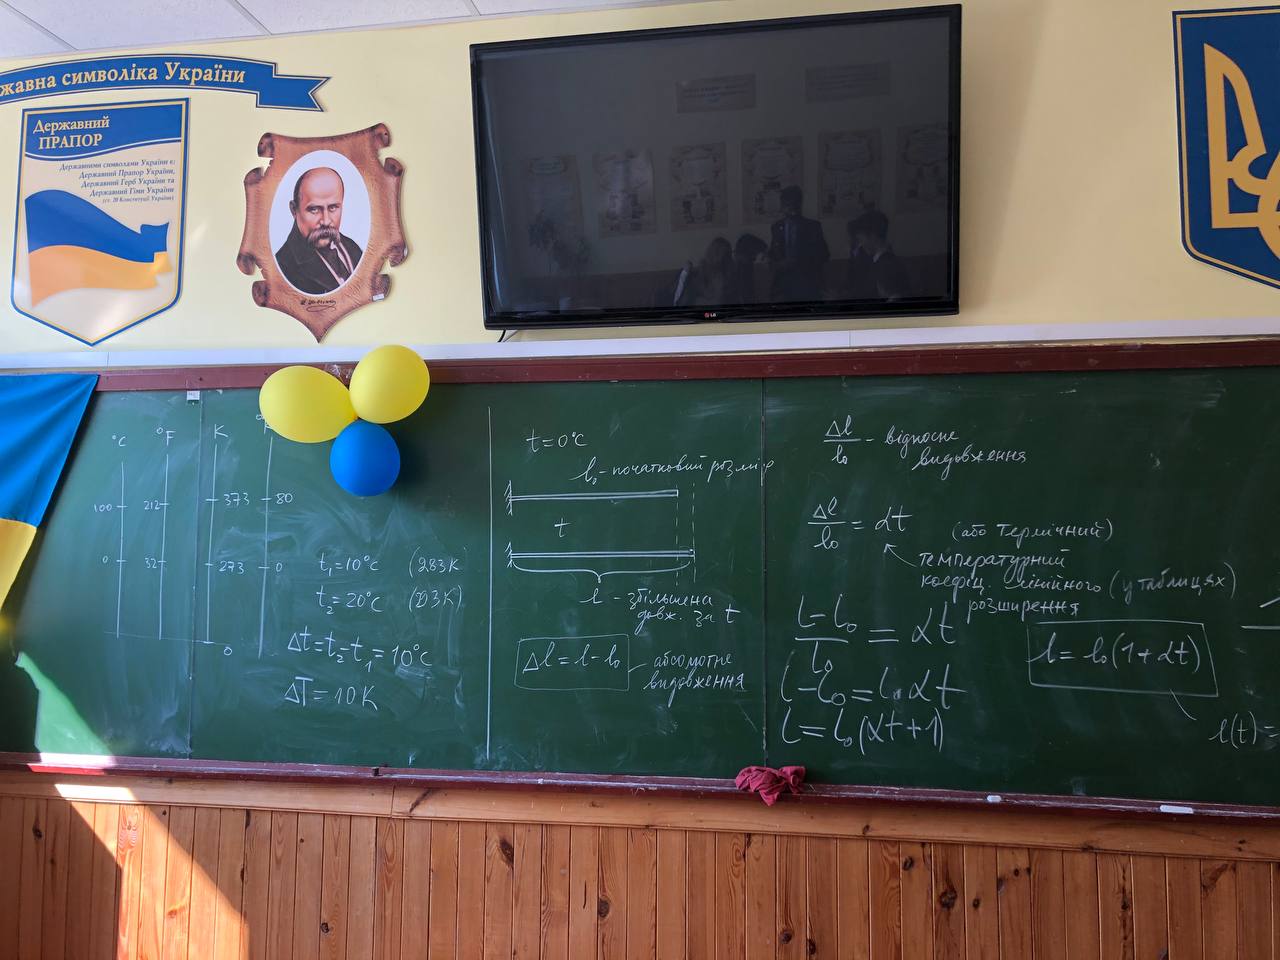 жавна символіка України
Державний
ПРАПОР
Державними символами України є:
Державний Прапор України,
Державний Герб України та
Державний Гімн України
(ст. 20 Конституції України)
LG
°C °F K
100 212 373 80
0 32 273 0
0
t₁=10°C (283K)
t₂=20°C (293K)
Δt=t₂-t₁=10°C
ΔT=10K
t=0°C
l₀-початковий розмір
t
l - збільшена
довж. за t
Δl=l-l₀ - абсолютне
видовження
Δl/l₀ - відносне
видовження
Δl/l₀ = αt
(або термічний)
температурний
коефіц. лінійного (у таблицях)
розширення
l-l₀/l₀ = αt
l-l₀=l₀αt
l=l₀(αt+1)
l=l₀(1+αt)
l(t)=